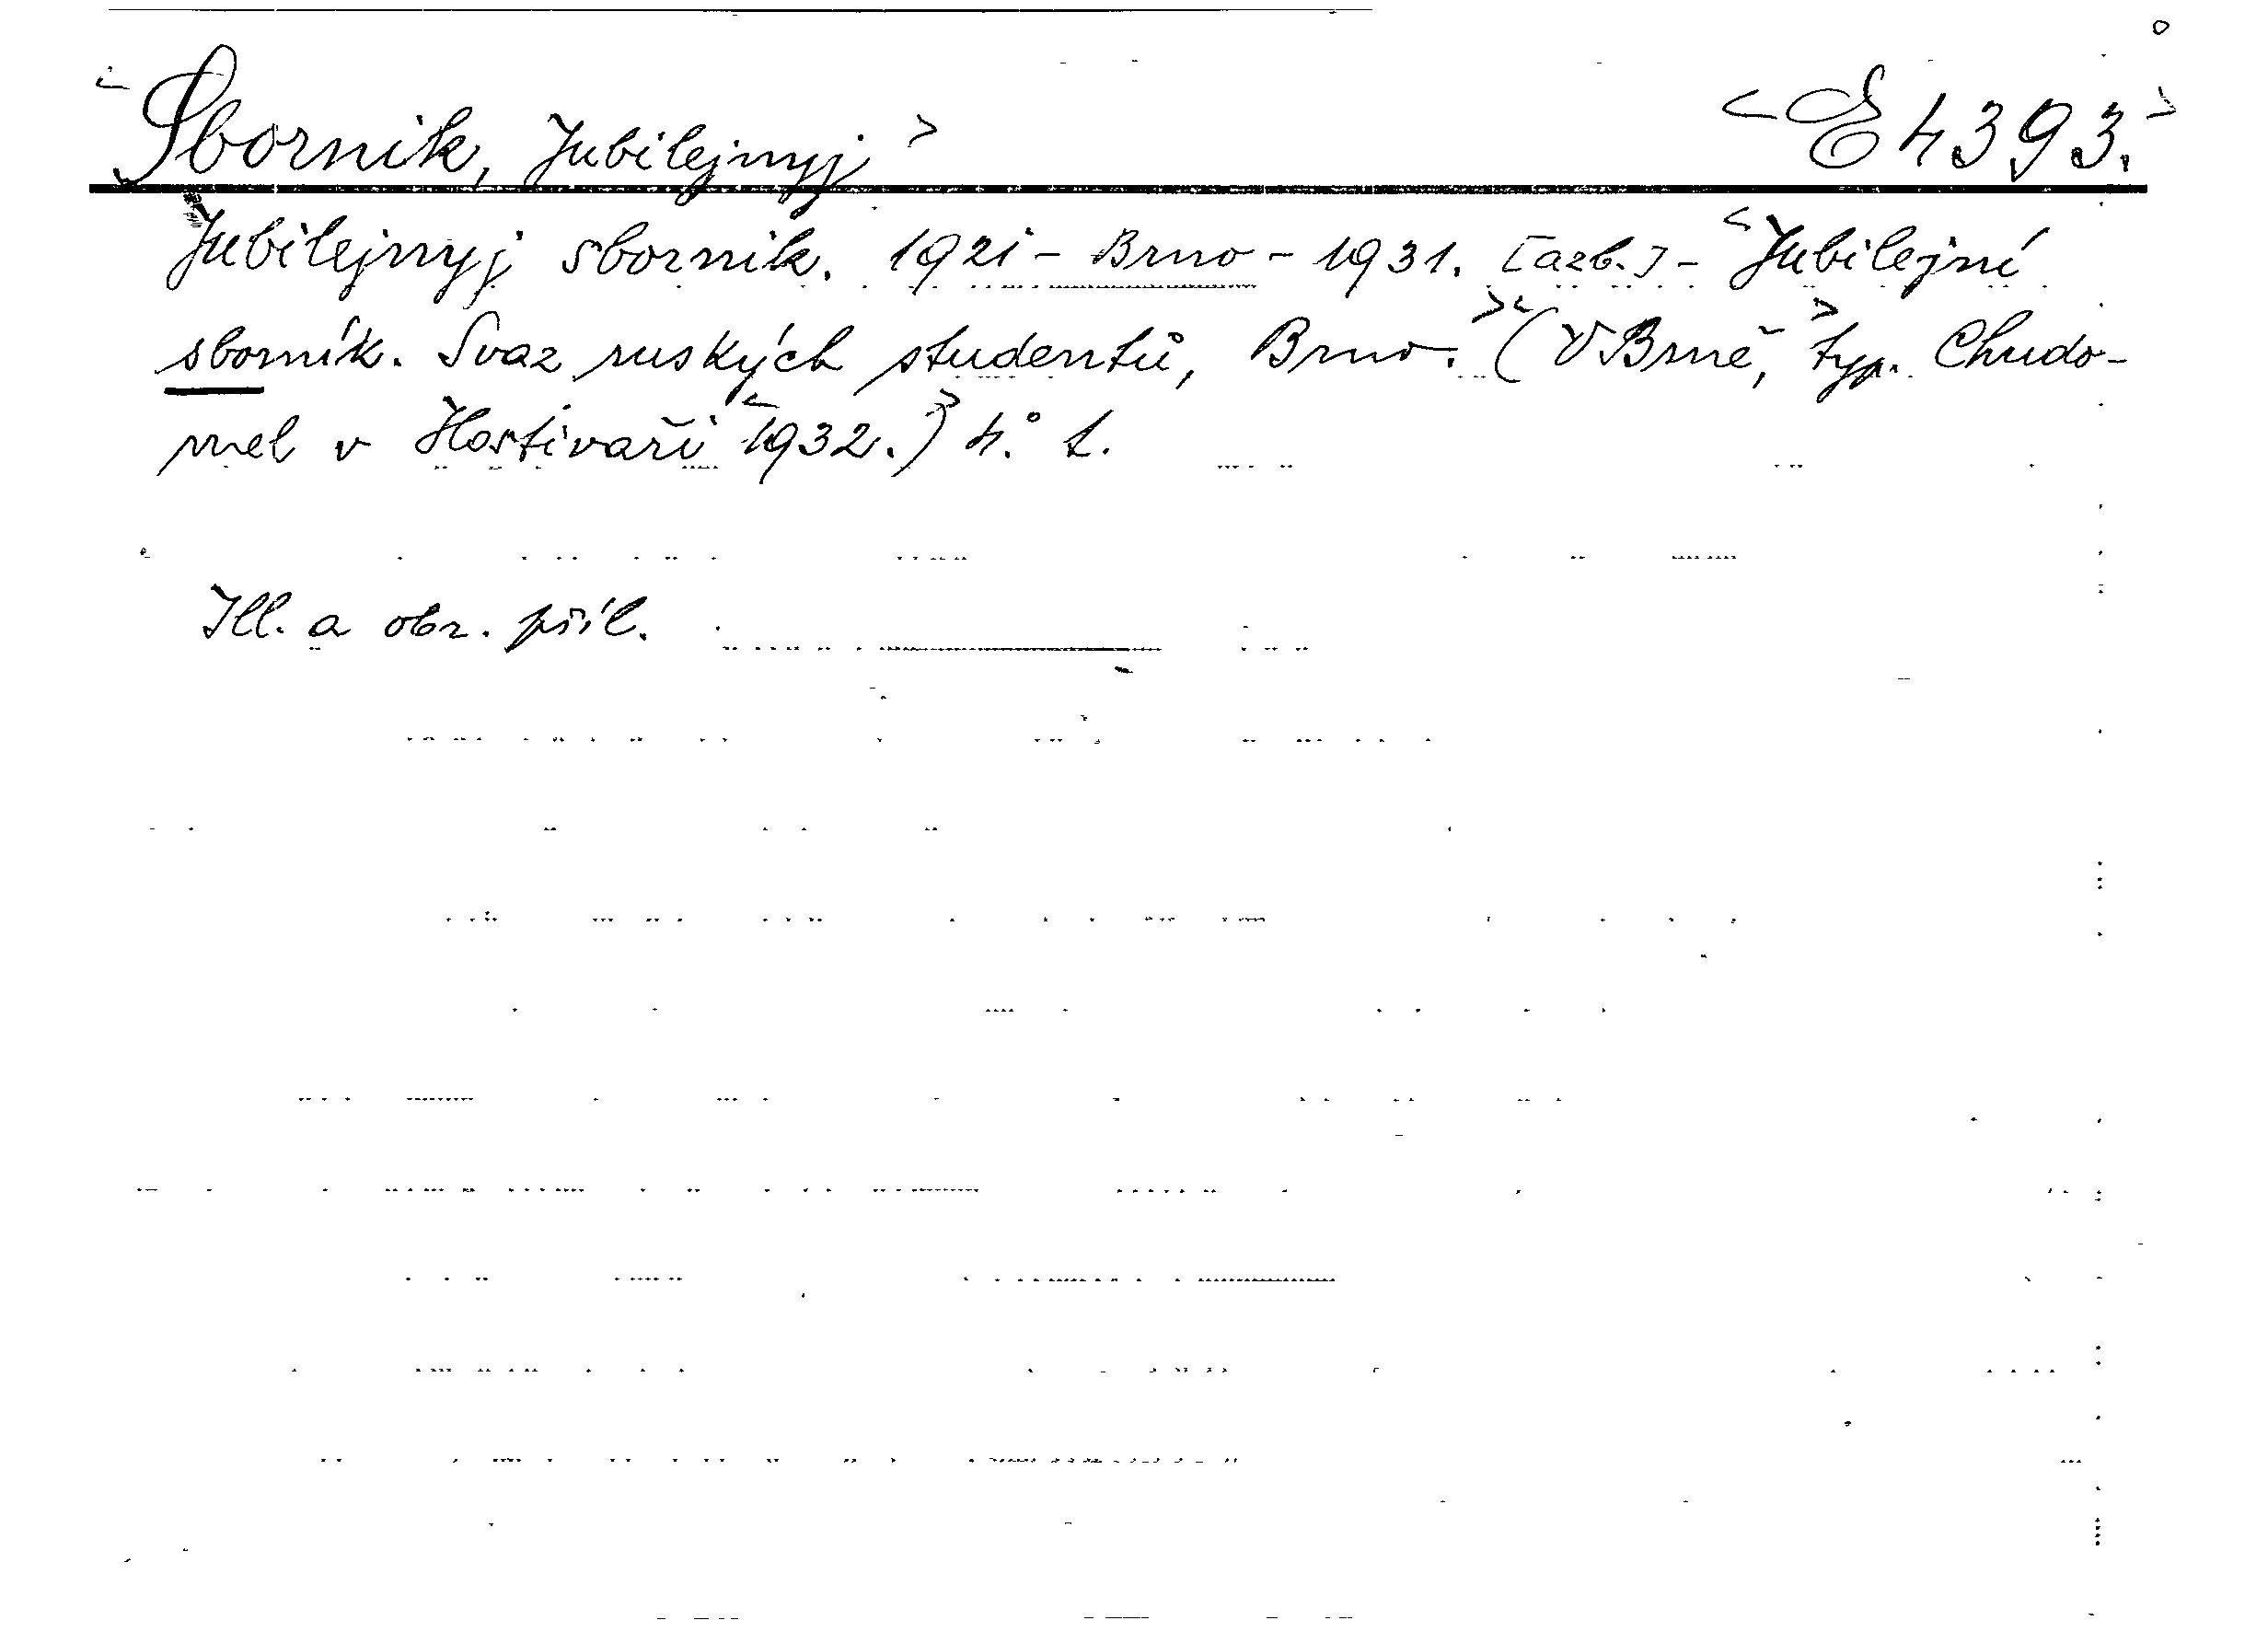 <Sborník, Jubilejnyj> <E 4393.>
Jubilejnyj sbornik. 1921 - Brno - 1931. [azb.] - <Jubilejní
sborník. Svaz ruských studentů, Brno.> <(V Brně,> typ. Chudo-
mel v Hostivaři <1932.)> 4.° t.
Ill. a obr. příl.